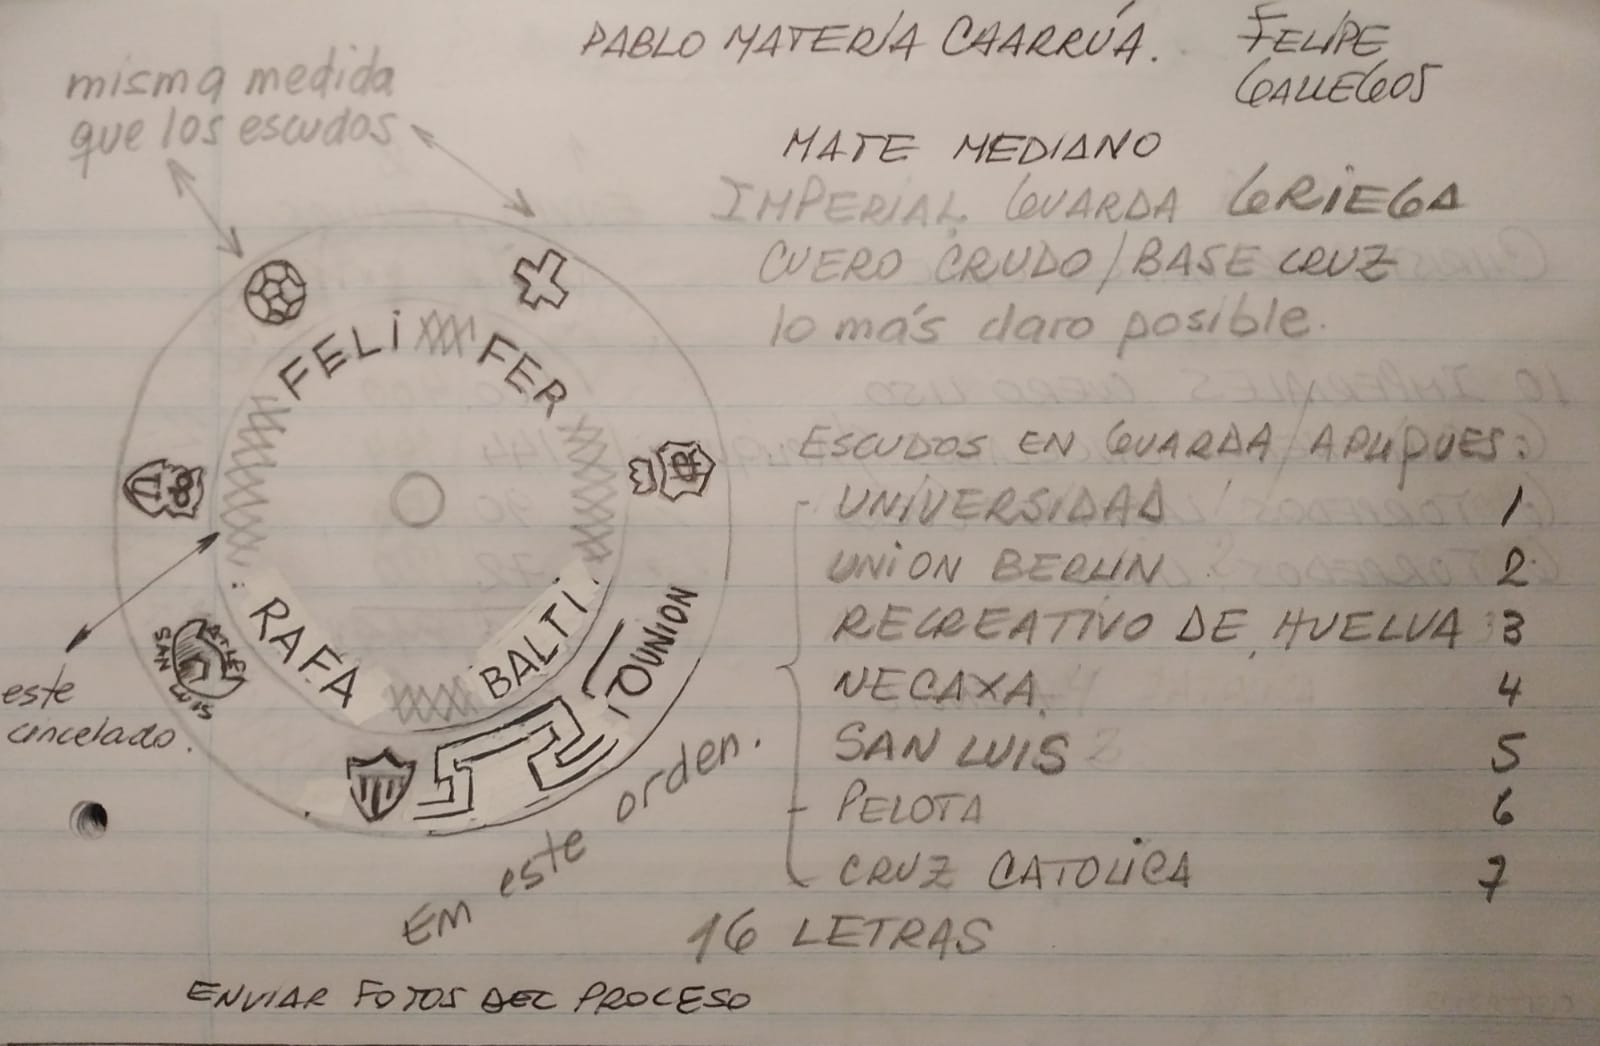 PABLO MATERIA CAARRÚA.
FELIPE
GALLEGOS
misma medida
que los escudos
MATE MEDIANO
IMPERIAL. GUARDA GRIEGA
CUERO CRUDO / BASE CRUZ
lo más claro posible.
FELI
FER
RAFA
BALTI
UNION
ATLET
SAN LUIS
este
cincelado.
ESCUDOS EN GUARDA / APLIQUES:
UNIVERSIDAD 1
UNION BERLIN 2
RECREATIVO DE HUELVA 3
NECAXA. 4
SAN LUIS 5
PELOTA 6
CRUZ CATOLICA 7
EM este orden.
16 LETRAS
ENVIAR FOTOS DEL PROCESO